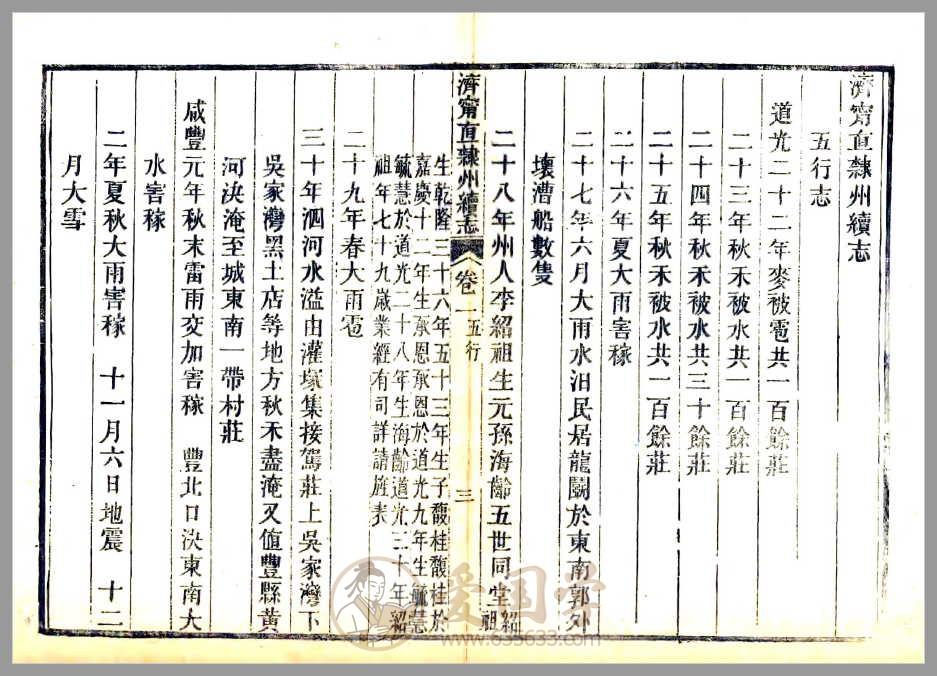 濟甯直隸州續志
五行志
道光二十二年麥被雹共一百餘莊
二十三年秋禾被水共一百餘莊
二十四年秋禾被水共三十餘莊
二十五年秋禾被水共一百餘莊
二十六年夏大雨害稼
二十七年六月大雨水汨民居龍鬭於東南郭外
壞漕船數隻
二十八年州人李紹祖生元孫海齡五世同堂紹祖
生乾隆三十六年五十三年生子馥桂馥桂於
嘉慶十二年生承恩承恩於道光九年生毓慧
毓慧於道光二十八年生海齡道光三十年紹
祖年七十九歲業經有司詳請旌表
濟甯直隸州續志 卷一 五行 三
二十九年春大雨雹
三十年泗河水溢由灌塚集接駕莊上吳家灣下
吳家灣黑土店等地方秋禾盡淹又值豐縣黃
河決淹至城東南一帶村莊
咸豐元年秋末雷雨交加害稼 豐北口決東南大
水害稼
二年夏秋大雨害稼 十一月六日地震 十二
月大雪
爱国学
www.635633.com